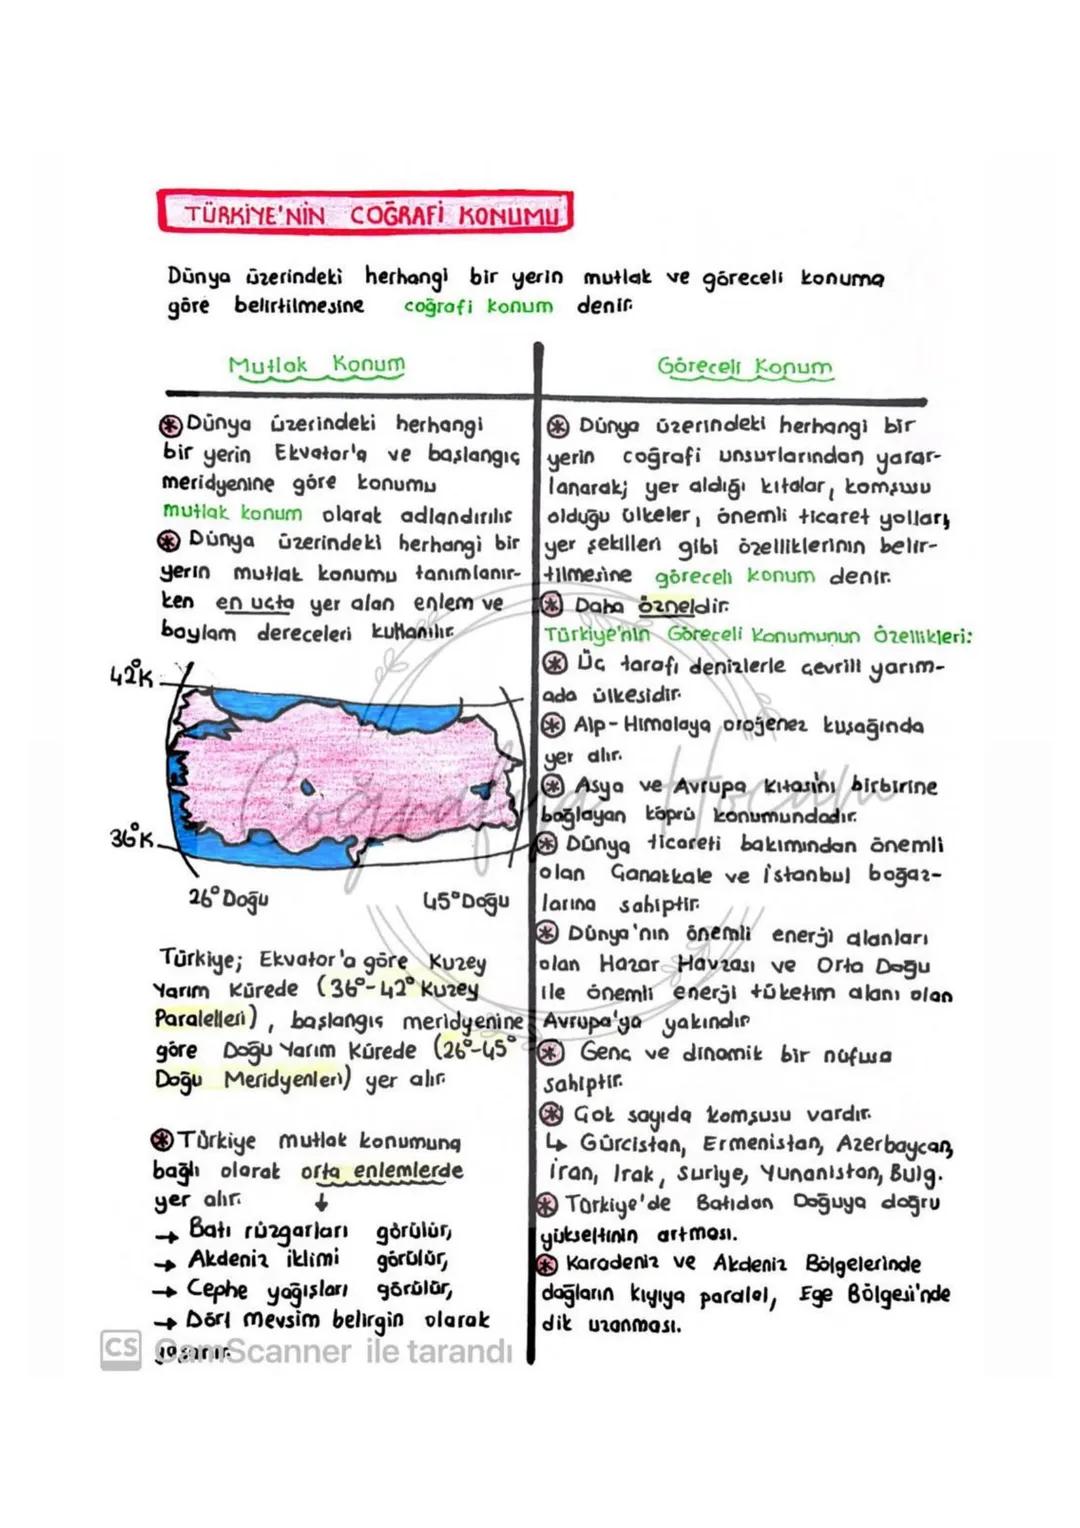 TÜRKİYE'NİN COĞRAFİ KONUMU
Dünya üzerindeki herhangi bir yerin mutlak ve göreceli konuma
göre belirtilmesine coğrafi konum denir.
Mutlak Konum
Dünya üzerindeki herhangi
bir yerin Ekvator'a ve başlangıç
meridyenine göre konumu
mutlak konum olarak adlandırılır
Dünya üzerindeki herhangi bir
yerin mutlak konumu tanımlanır-
ken en uçta yer alan enlem ve
boylam dereceleri kullanılır.
42°K
36°K
26° Doğu
45° Doğu
Türkiye; Ekvator'a göre Kuzey
Yarım Kürede (36°-42° Kuzey
Paralelleri), başlangıç meridyenine
göre Doğu Yarım Kürede (26°-45°
Doğu Meridyenleri) yer alır.
Türkiye mutlak konumuna
bağlı olarak orta enlemlerde
yer alır. ↓
→ Batı rüzgarları görülür,
→ Akdeniz iklimi görülür,
→ Cephe yağışları görülür,
→ Dört mevsim belirgin olarak
yaşanır.
Göreceli Konum
Dünya üzerindeki herhangi bir
yerin coğrafi unsurlarından yarar-
lanarak; yer aldığı kıtalar, komşusu
olduğu ülkeler, önemli ticaret yolları,
yer şekilleri gibi özelliklerinin belir-
tilmesine göreceli konum denir.
Daha özneldir.
Türkiye'nin Göreceli Konumunun Özellikleri:
Üç tarafı denizlerle çevrili yarım-
ada ülkesidir.
Alp-Himalaya orojenez kuşağında
yer alır.
Asya ve Avrupa kıtasını birbirine
bağlayan köprü konumundadır.
Dünya ticareti bakımından önemli
olan Çanakkale ve İstanbul boğaz-
larına sahiptir.
Dünya'nın önemli enerji alanları
olan Hazar Havzası ve Orta Doğu
ile önemli enerji tüketim alanı olan
Avrupa'ya yakındır
Genç ve dinamik bir nüfusa
sahiptir.
Çok sayıda komşusu vardır.
↳ Gürcistan, Ermenistan, Azerbaycan,
İran, Irak, Suriye, Yunanistan, Bulg.
Türkiye'de Batıdan Doğuya doğru
yükseltinin artması.
Karadeniz ve Akdeniz Bölgelerinde
dağların kıyıya paralel, Ege Bölgesi'nde
dik uzanması.
Coğrafya Hocam
CS CamScanner ile tarandı